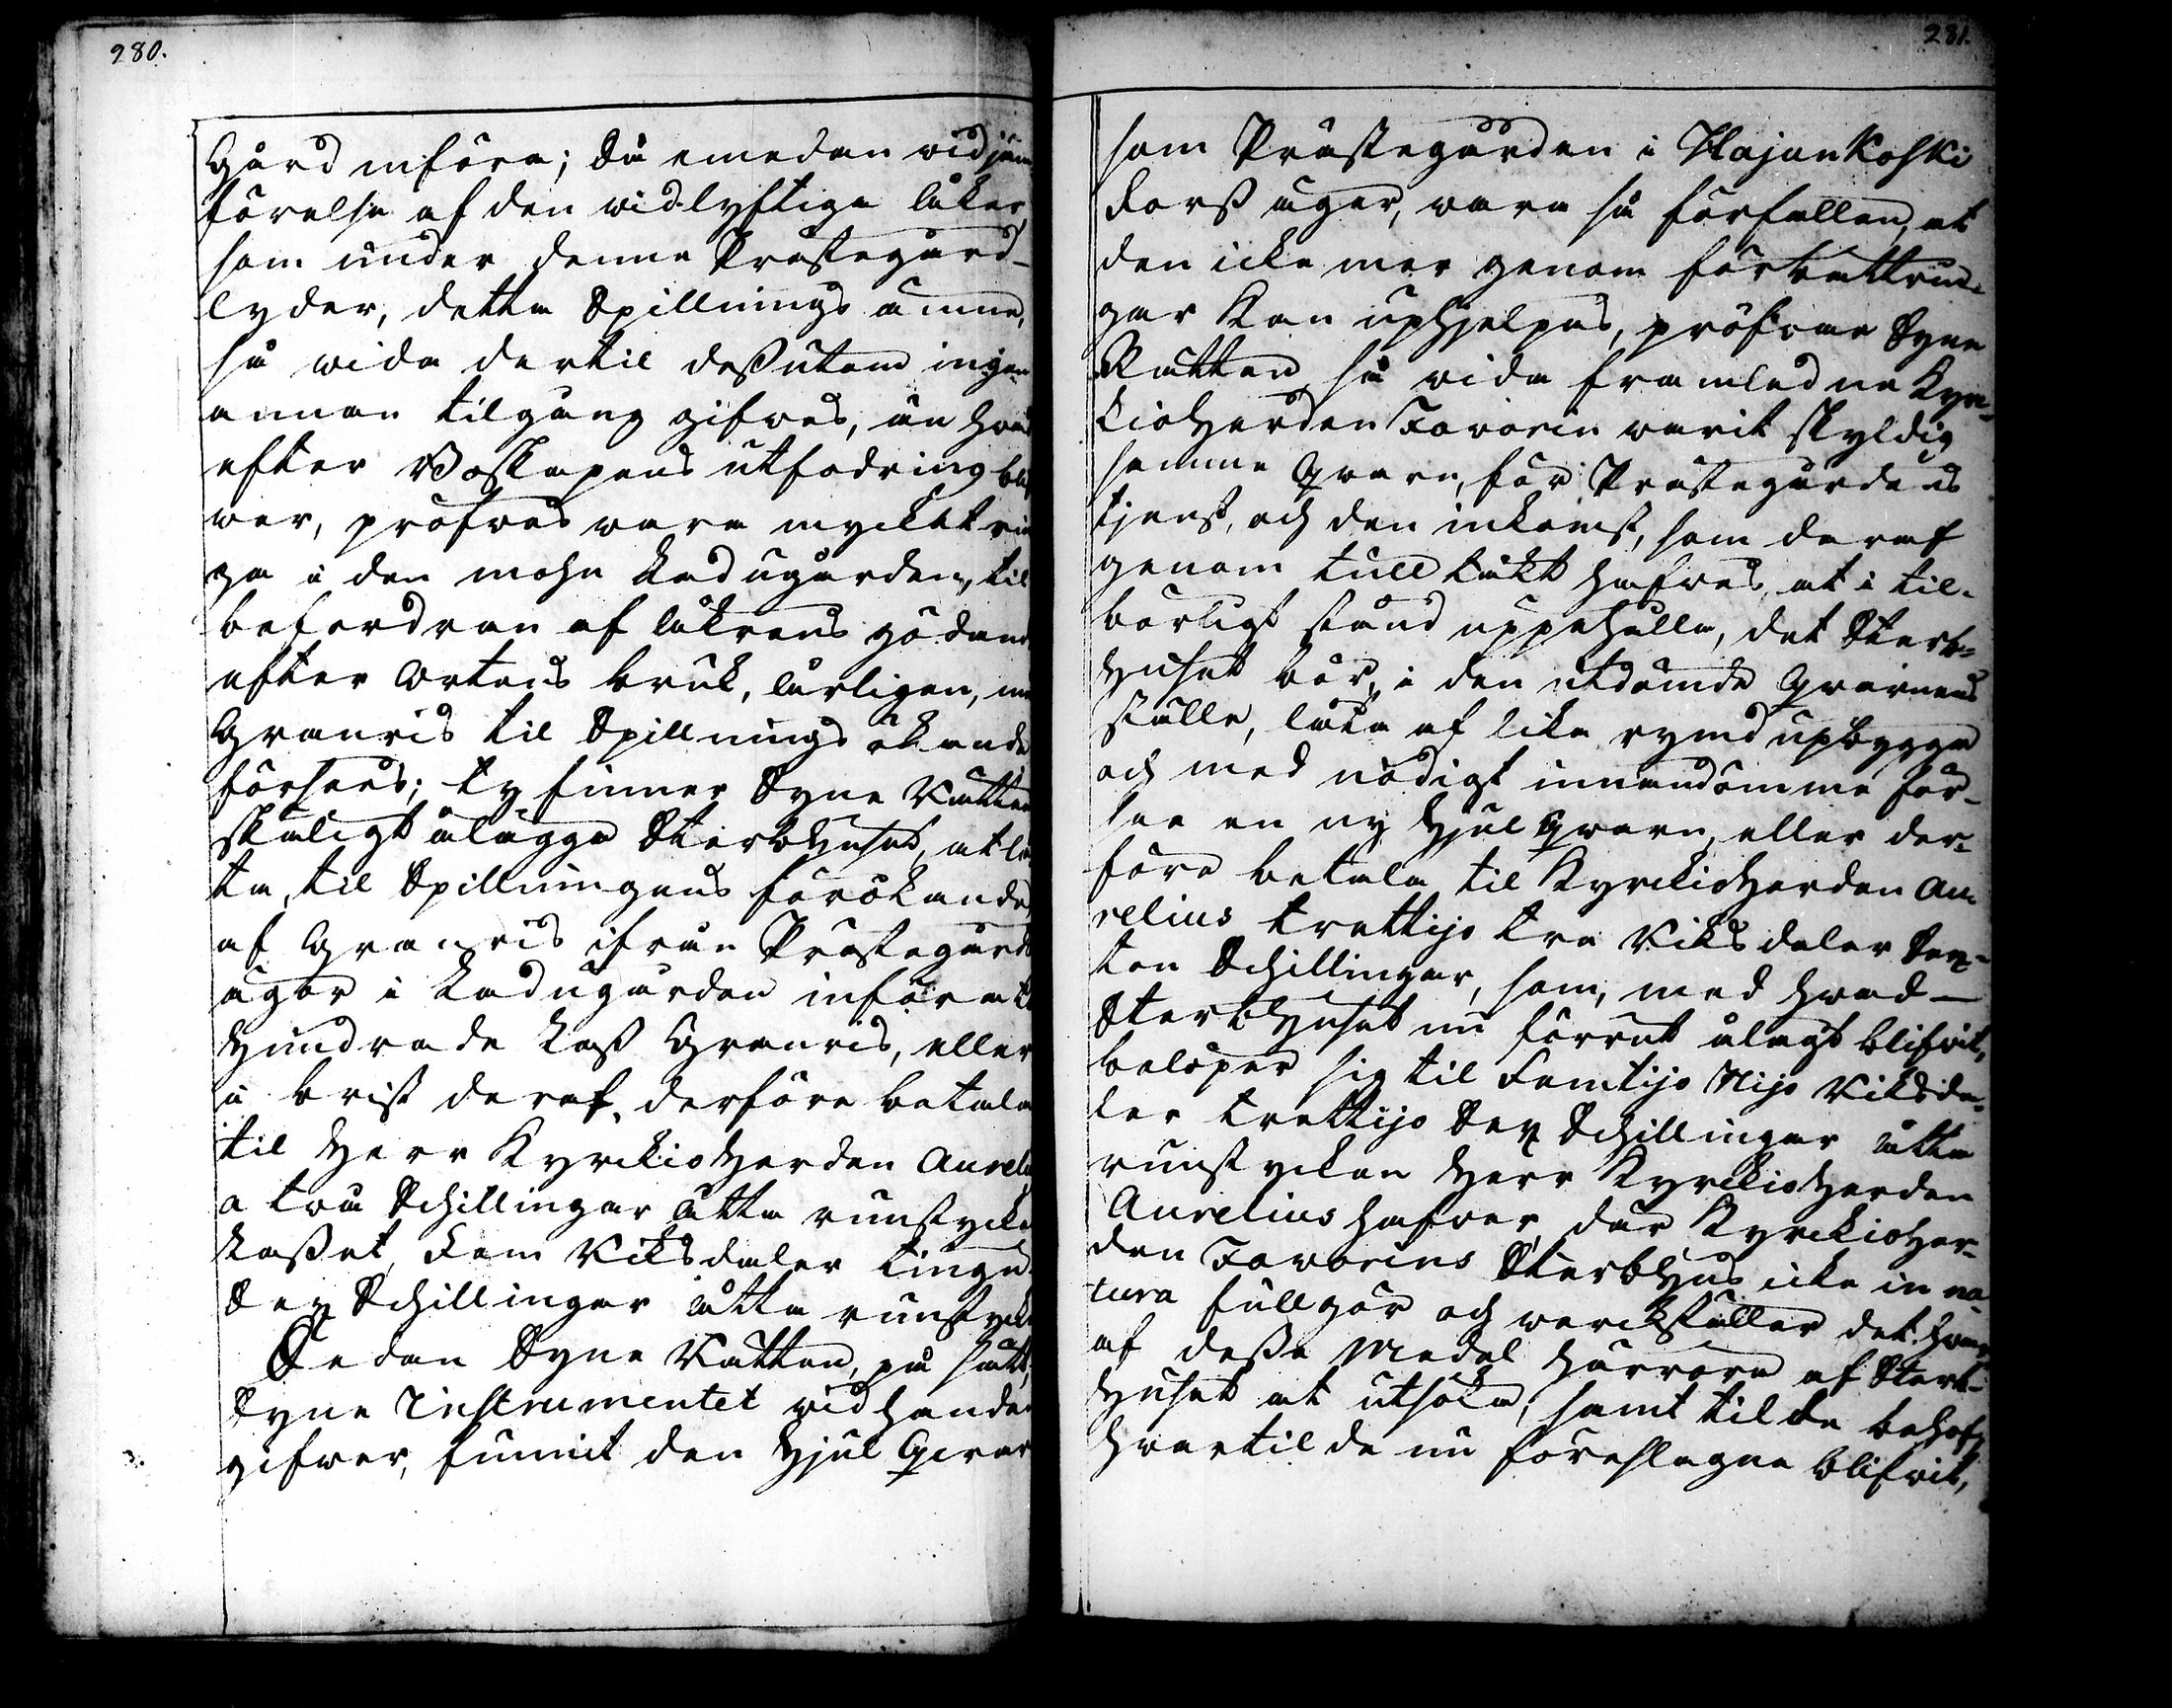 280.
Gård införa; Då emedan vid jäm
förelse af den widlyftiga åker,
som under denne Prästegård
lyder, detta Spillnings ämne,
så wida dertil dessutom ingen
annan tilgång gifwes, än hwad
efter Boskapens utfodring blif
wer, pröfwas wara mycket rin
ga i den mohn Ladugården, til
befordran af åkrens gödan
efter Ortens bruk, årligen, med
Granris til Spillnings ökande
förses; ty finner Syne Rätten
skäligt ålägga Sterbhuset, at lå
ta, til Spillningens förökande,
af Granris ifrån Prästegårds
ägor i Ladugården införa ett
Hundrade Lass Granris, eller
i brist deraf, derföre betala
til Herr Kyrckioherden Aureli
a två Schillingar åtta runstycke
Lasset, Fem Riksdaler tingu
Sex Schillingar åtta runstycke
Sedan Syne Rätten, på sätt,
Syne Instrumentet vid handen
gifwer, funnit den Hjul Qvar
3.
281.
som Prästegården i Majankoski
Forss äger, wara så förfallen, at
den icke mer genom förbättrin-
gar kan uphjelpas, pröfwar Syne
Rätten, så wida framledne Kyr-
kioherden Favorin warit skyldig
samme Qvarn, för Prästegårdens
tjenst, och den inkomst, som deraf
genom tull täkt hafwes, at i til-
börligt stånd uppehålla, det Sterb-
huset bör, i den utdömde Qvarnens
ställe, låta af lika rymd upbygga
och med nödigt innandömme för-
se en ny Hjul Qvarn, eller der-
före betala til Kyrckioherden Au-
relius trettijo tre Riksdaler Sex-
ton Schillingar, som, med hwad
Sterbhuset nu förrut ålagt blifwit,
belöper sig til Femtijo Nijo Riksda-
ler trettijo Sex Schillingar åtta
runstycken Herr Kyrckioherden
Aurelius hafwer, där Kyrckioher-
den Favorins Sterbhus icke in na-
tura fullgör och werckställer det hwar
af desse Medel härröra af Sterb-
huset at utsöka, samt til de behof,
hwartil de nu föreslagne blifwit,